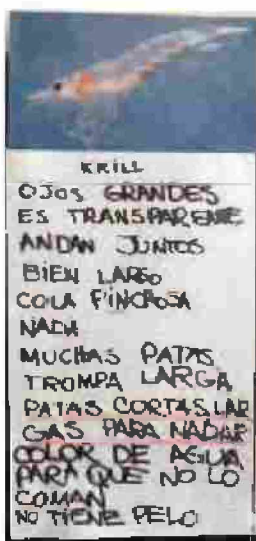 KRILL
OJOS GRANDES
ES TRANSPARENTE
ANDAN JUNTOS
BIEN LARGO
COLA FINCHOSA
NADA
MUCHAS PATAS
TROMPA LARGA
PATAS CORTAS, LAR
GAS PARA NADAR
COLOR DE AGUA
PARA QUE NO LO
COMAN
NO TIENE PELO